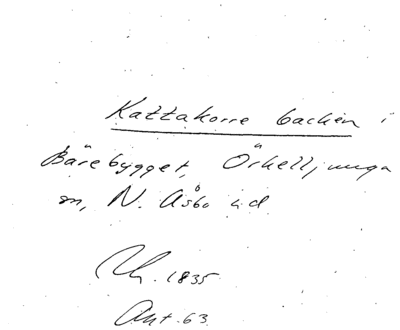 Kattakorre backen i
Bärebygget, Örkelljunga
sn, N. Åsbo hd
1835
Ant. 63